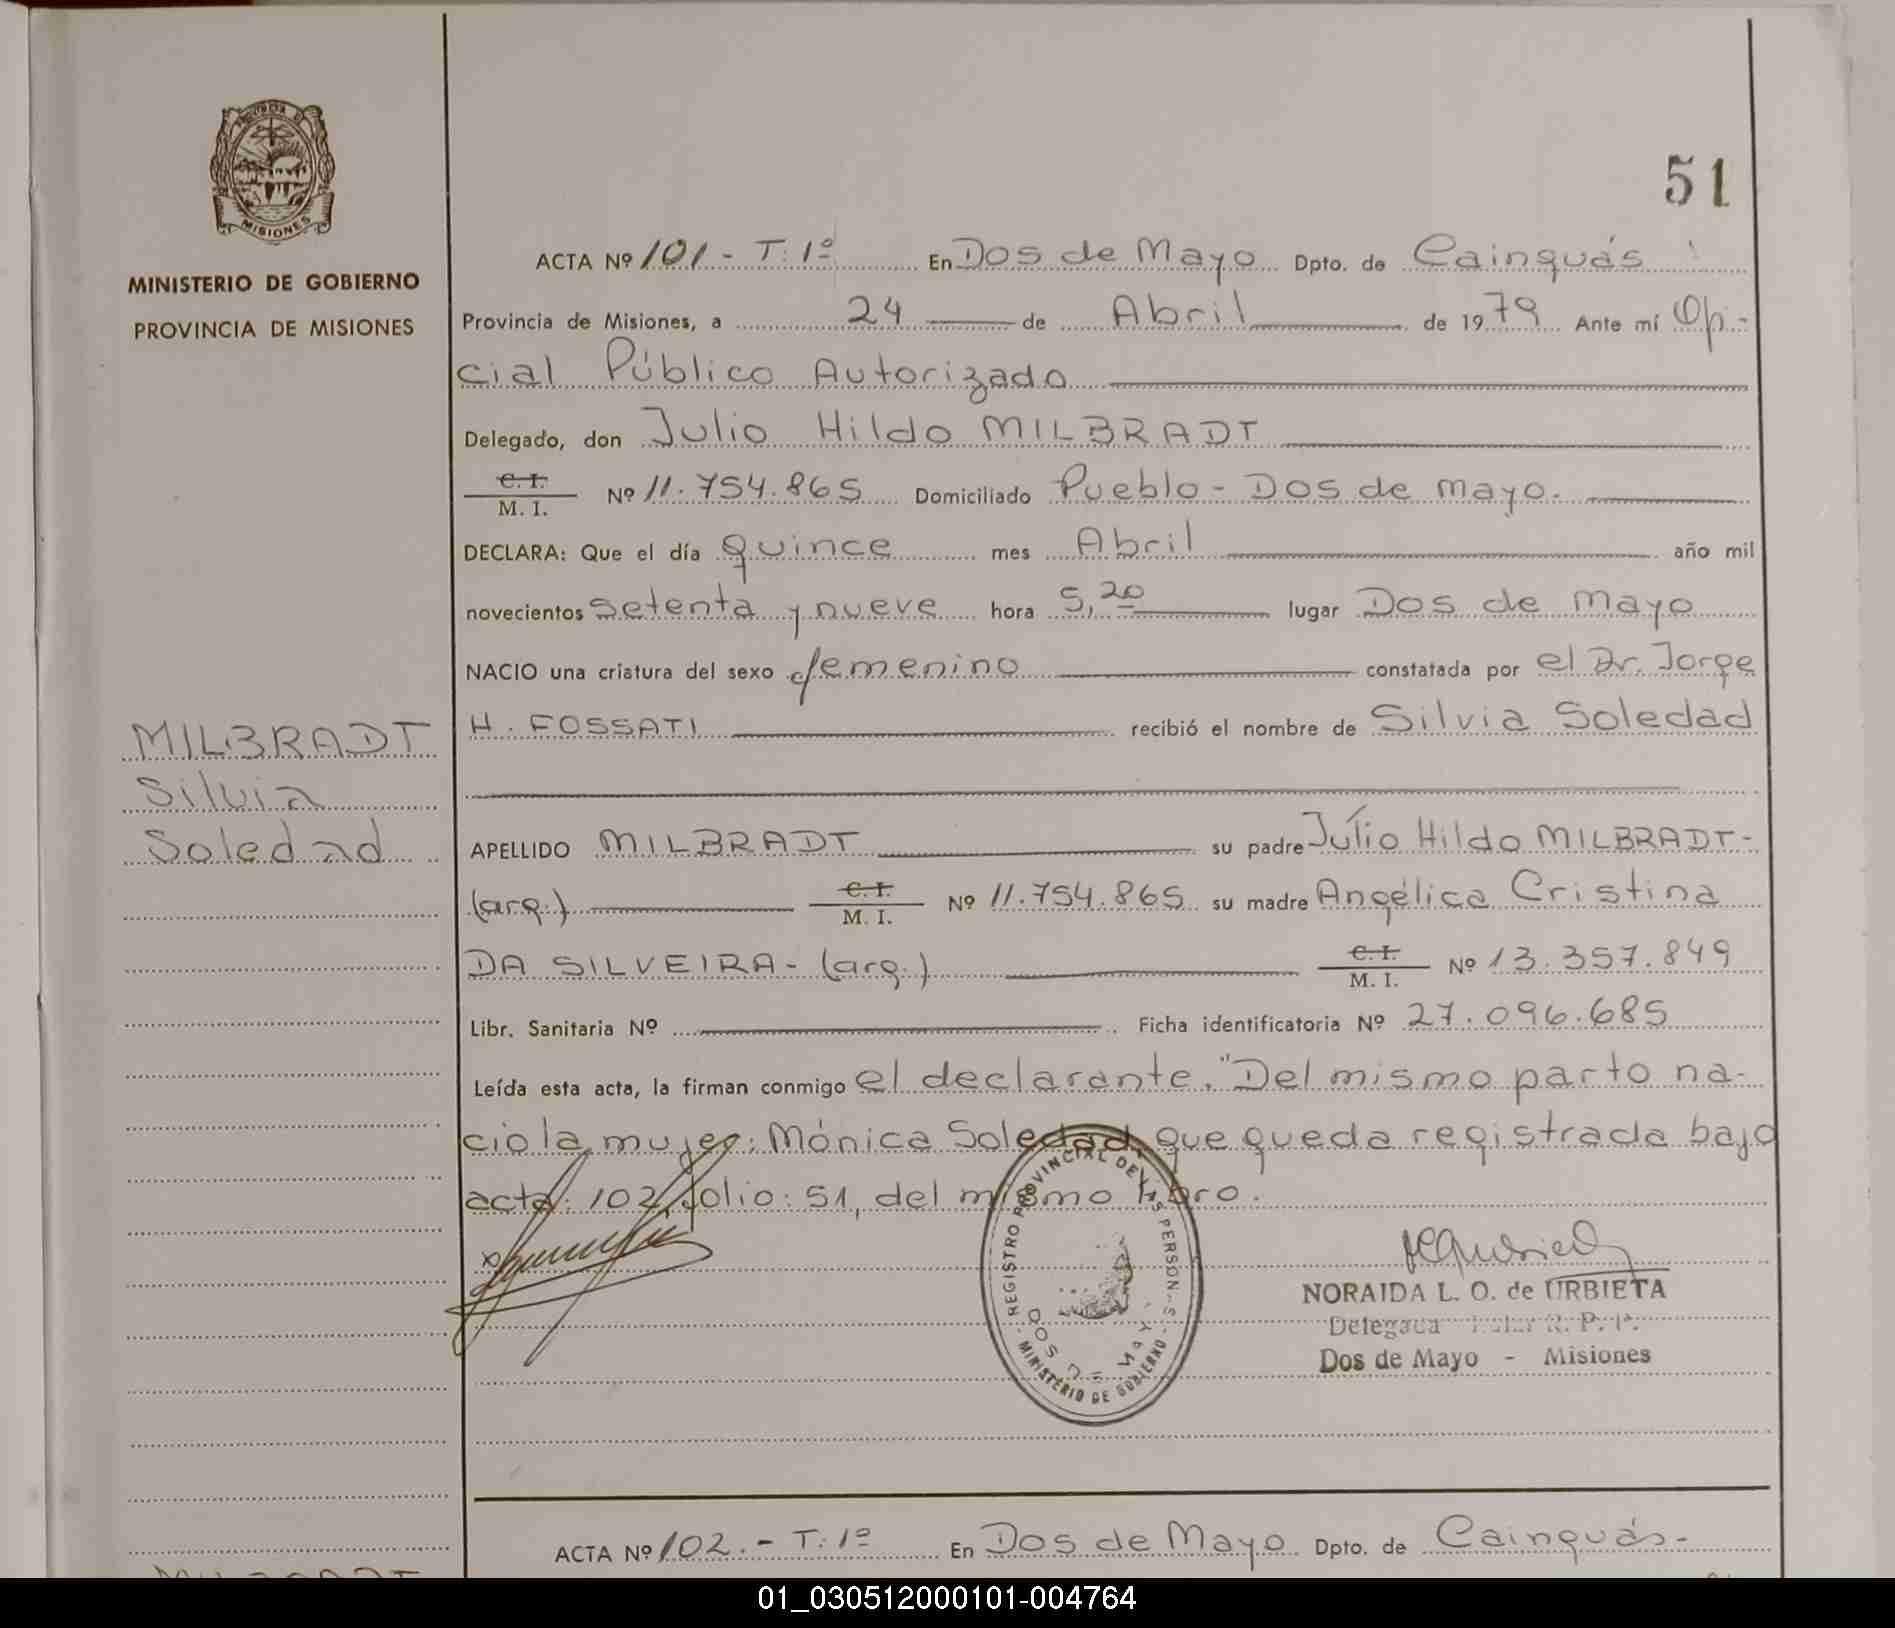 PROVINCIA DE
MISIONES
MINISTERIO DE GOBIERNO
PROVINCIA DE MISIONES
MILBRADT
Silvia
Soledad
51
ACTA Nº 101 - T: 1º En Dos de Mayo Dpto. de Cainguás
Provincia de Misiones, a 24 de Abril de 1979 Ante mí Ofi-
cial Público Autorizado
Delegado, don Julio Hildo MILBRADT
C. I.
M. I. Nº 11.754.865 Domiciliado Pueblo - Dos de Mayo.
DECLARA: Que el día quince mes Abril año mil
novecientos setenta y nueve hora 5,20 lugar Dos de Mayo
NACIO una criatura del sexo femenino constatada por el Dr. Jorge
H. FOSSATI recibió el nombre de Silvia Soledad
APELLIDO MILBRADT su padre Julio Hildo MILBRADT-
(arg.) C. I.
M. I. Nº 11.754.865 su madre Angélica Cristina
DA SILVEIRA - (arg.) C. I.
M. I. Nº 13.357.849
Libr. Sanitaria Nº Ficha identificatoria Nº 27.096.685
Leída esta acta, la firman conmigo el declarante. "Del mismo parto na-
cio la mujer: Mónica Soledad, que queda registrada bajo
acta: 102, folio: 51, del mismo libro.
REGISTRO PROVINCIAL DE LAS PERSONAS
DOS DE MAYO
MINISTERIO DE GOBIERNO
NORAIDA L. O. de URBIETA
Delegada R. P. P.
Dos de Mayo - Misiones
ACTA Nº 102. - T: 1º En Dos de Mayo Dpto. de Cainguás-
MILBRADT
01_030512000101-004764